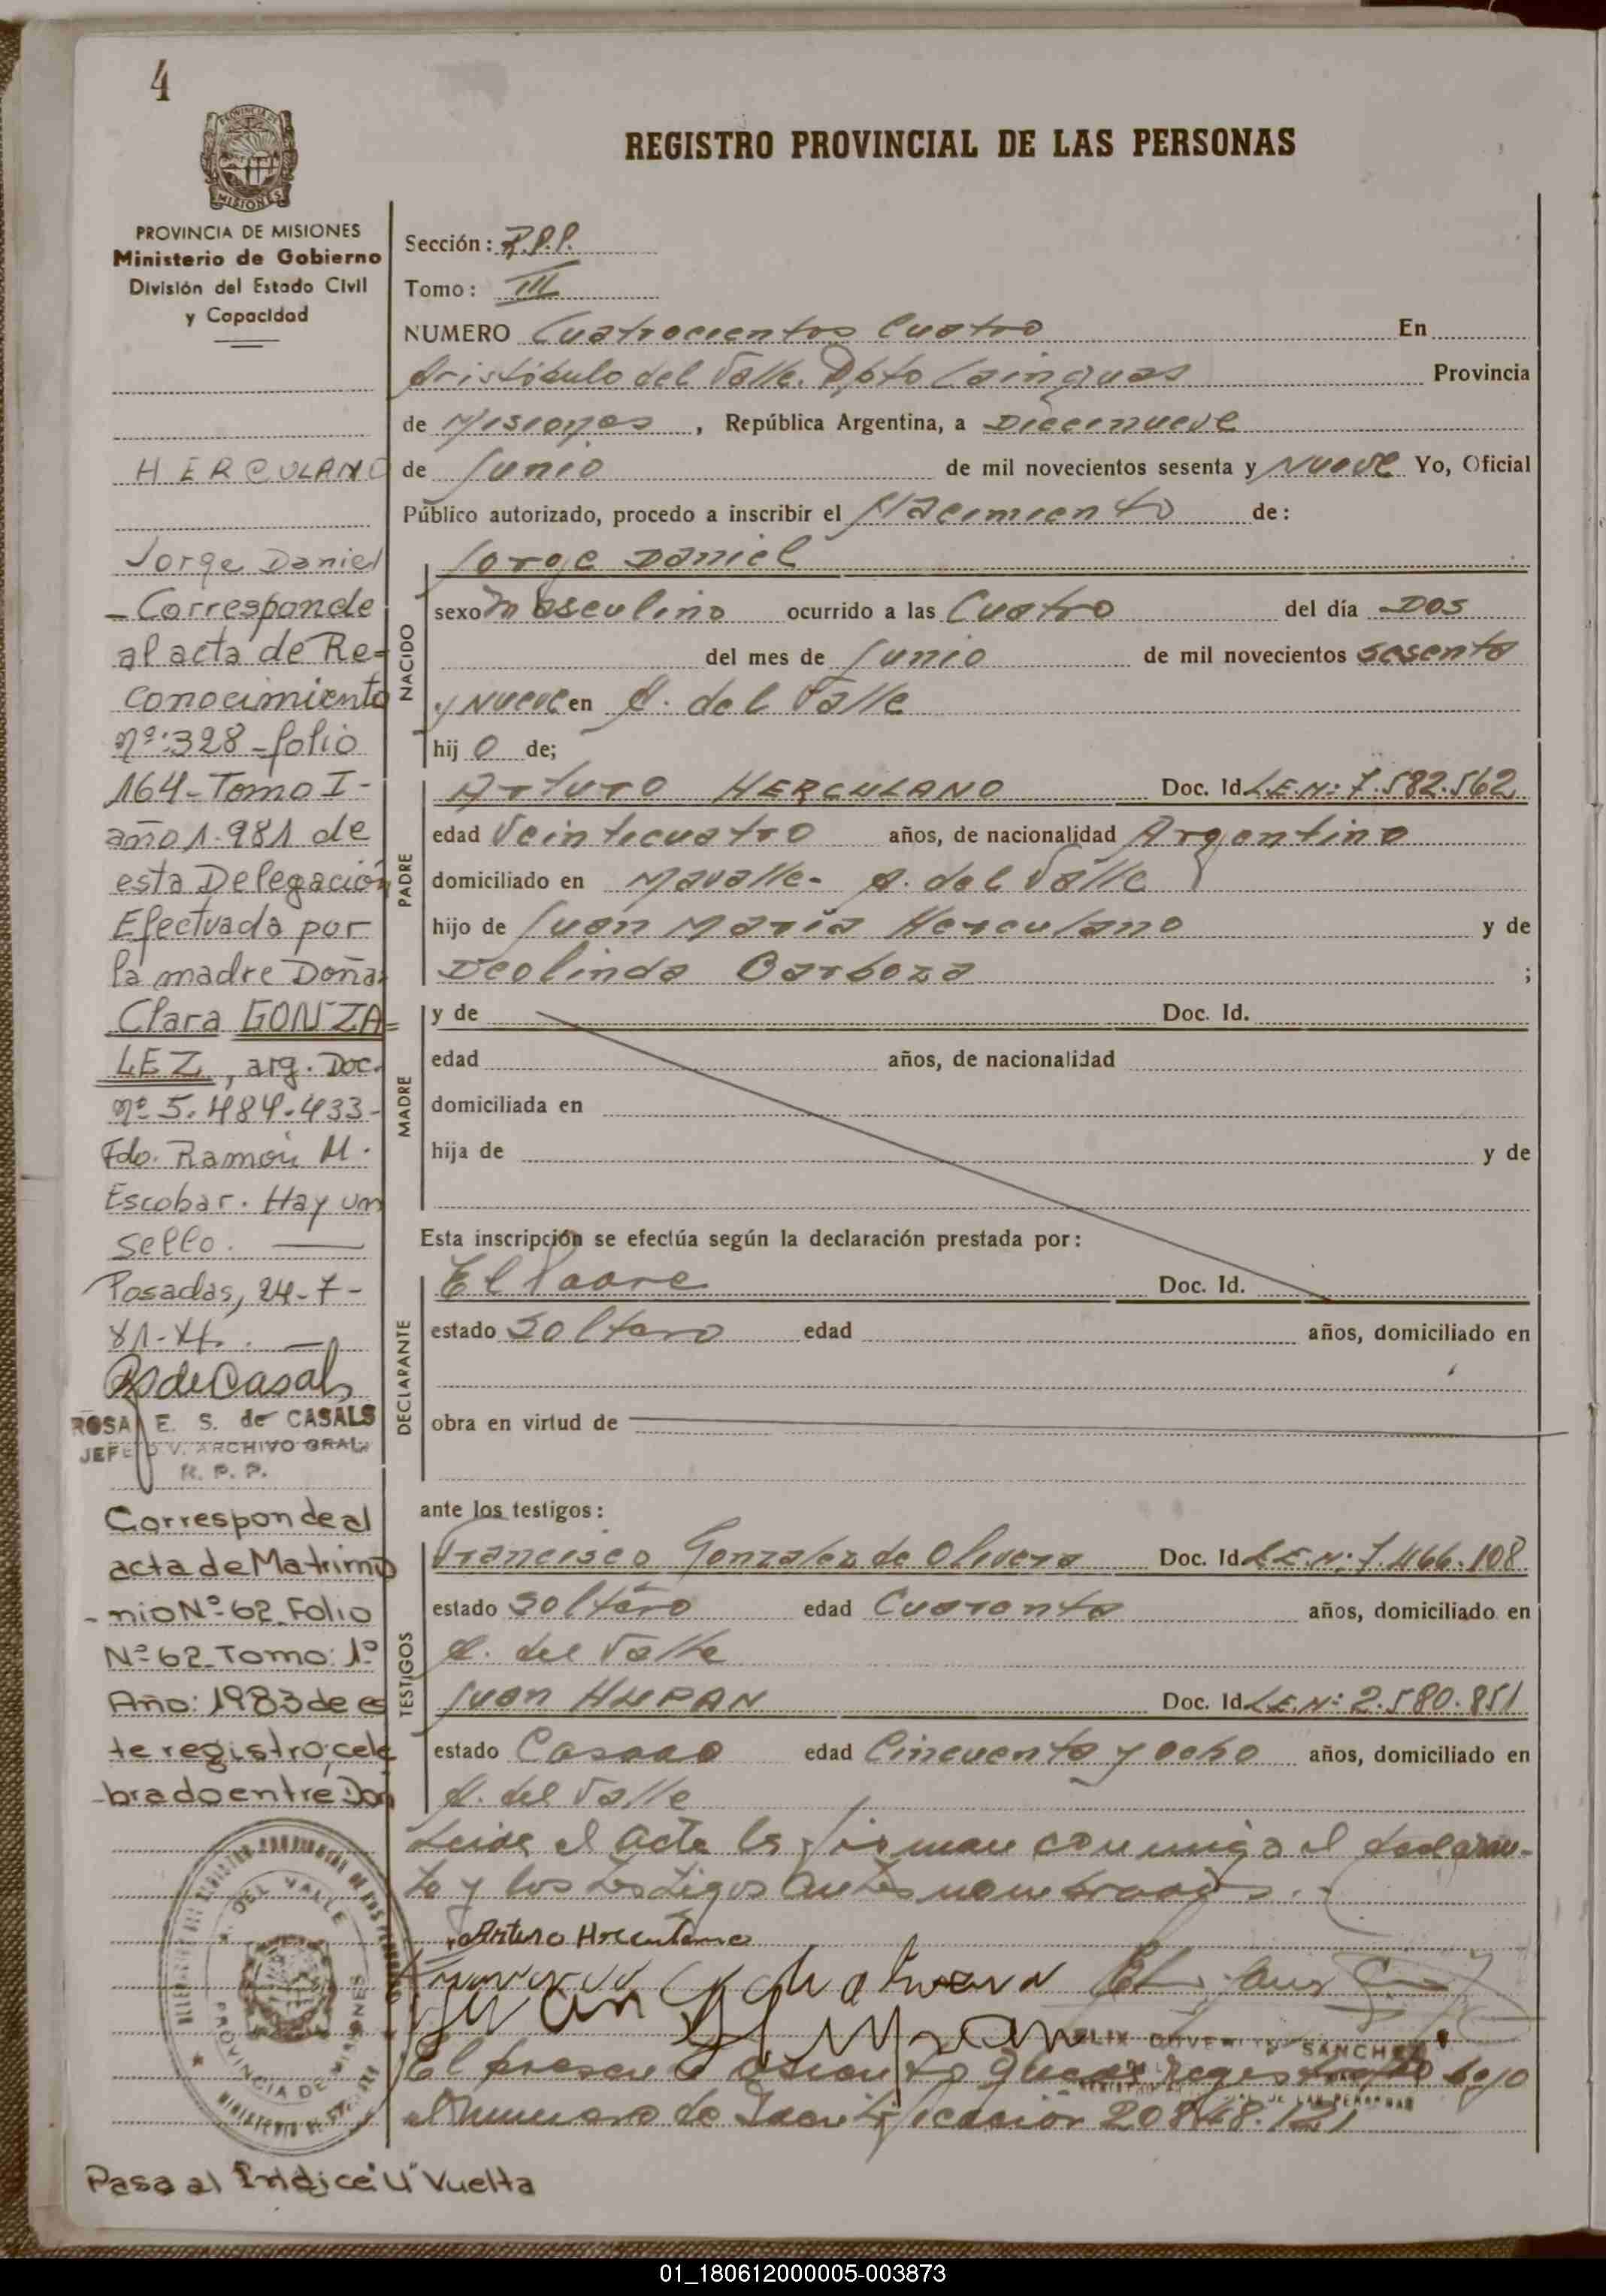 4
PROVINCIA DE MISIONES
Ministerio de Gobierno
División del Estado Civil
y Capacidad
HERCULANO
Jorge Daniel
- Corresponde
al acta de Re=
conocimiento
nº: 328 - folio
164 - Tomo I -
año 1.981 de
esta Delegación
Efectuada por
la madre Doña:
Clara GONZA=
LEZ, arg. Doc.
nº 5.484.433-
Fdo. Ramón M.
Escobar. Hay un
sello.
Posadas, 24-7-
81-
ROSA E. S. de CASALS
JEFE DIV. ARCHIVO GRAL.
R. P. P.
Corresponde al
acta de Matrimo
- nio Nº 62 Folio
Nº 62 Tomo: 1º
Año: 1983 de es
te registro, cele
- brado entre: Don
A. DEL VALLE
PROVINCIA DE MISIONES
Pasa al Indice "U" Vuelta
REGISTRO PROVINCIAL DE LAS PERSONAS
Sección: R.P.P.
Tomo: III
NUMERO Cuatrocientos Cuatro En
Aristóbulo del Valle. Dpto Cainguas Provincia
de Misiones, República Argentina, a Diecinueve
de Junio de mil novecientos sesenta y Nueve Yo, Oficial
Público autorizado, procedo a inscribir el Nacimiento de:
NACIDO
Jorge Daniel
sexo Masculino ocurrido a las Cuatro del día Dos
del mes de Junio de mil novecientos sesenta
y Nueve en A. del Valle
hijo de;
PADRE
Arturo HERCULANO Doc. Id. L.E.N: 7.582.562
edad Veinticuatro años, de nacionalidad Argentino
domiciliado en Mavalle - A. del Valle
hijo de Juan Maria Herculano y de
Deolinda Barboza ;
MADRE
y de Doc. Id.
edad años, de nacionalidad
domiciliada en
hija de y de
Esta inscripción se efectúa según la declaración prestada por:
DECLARANTE
El Padre Doc. Id.
estado Soltero edad años, domiciliado en
obra en virtud de
ante los testigos:
TESTIGOS
Francisco Gonzalez de Olivera Doc. Id. L.E.N: 7.466.108
estado Soltero edad Cuarenta años, domiciliado en
A. del Valle
Juan HUPAN Doc. Id. L.E.N: 2.580.851
estado Casado edad Cincuenta y ocho años, domiciliado en
A. del Valle
Leida el acta la firman conmigo el declaran-
te y los testigos antes nombrados.
Arturo Herculano
Juan Hupan
SANCHEZ
El presente asiento queda registrado bajo
el numero de Identificación 20.848.
01_180612000005-003873